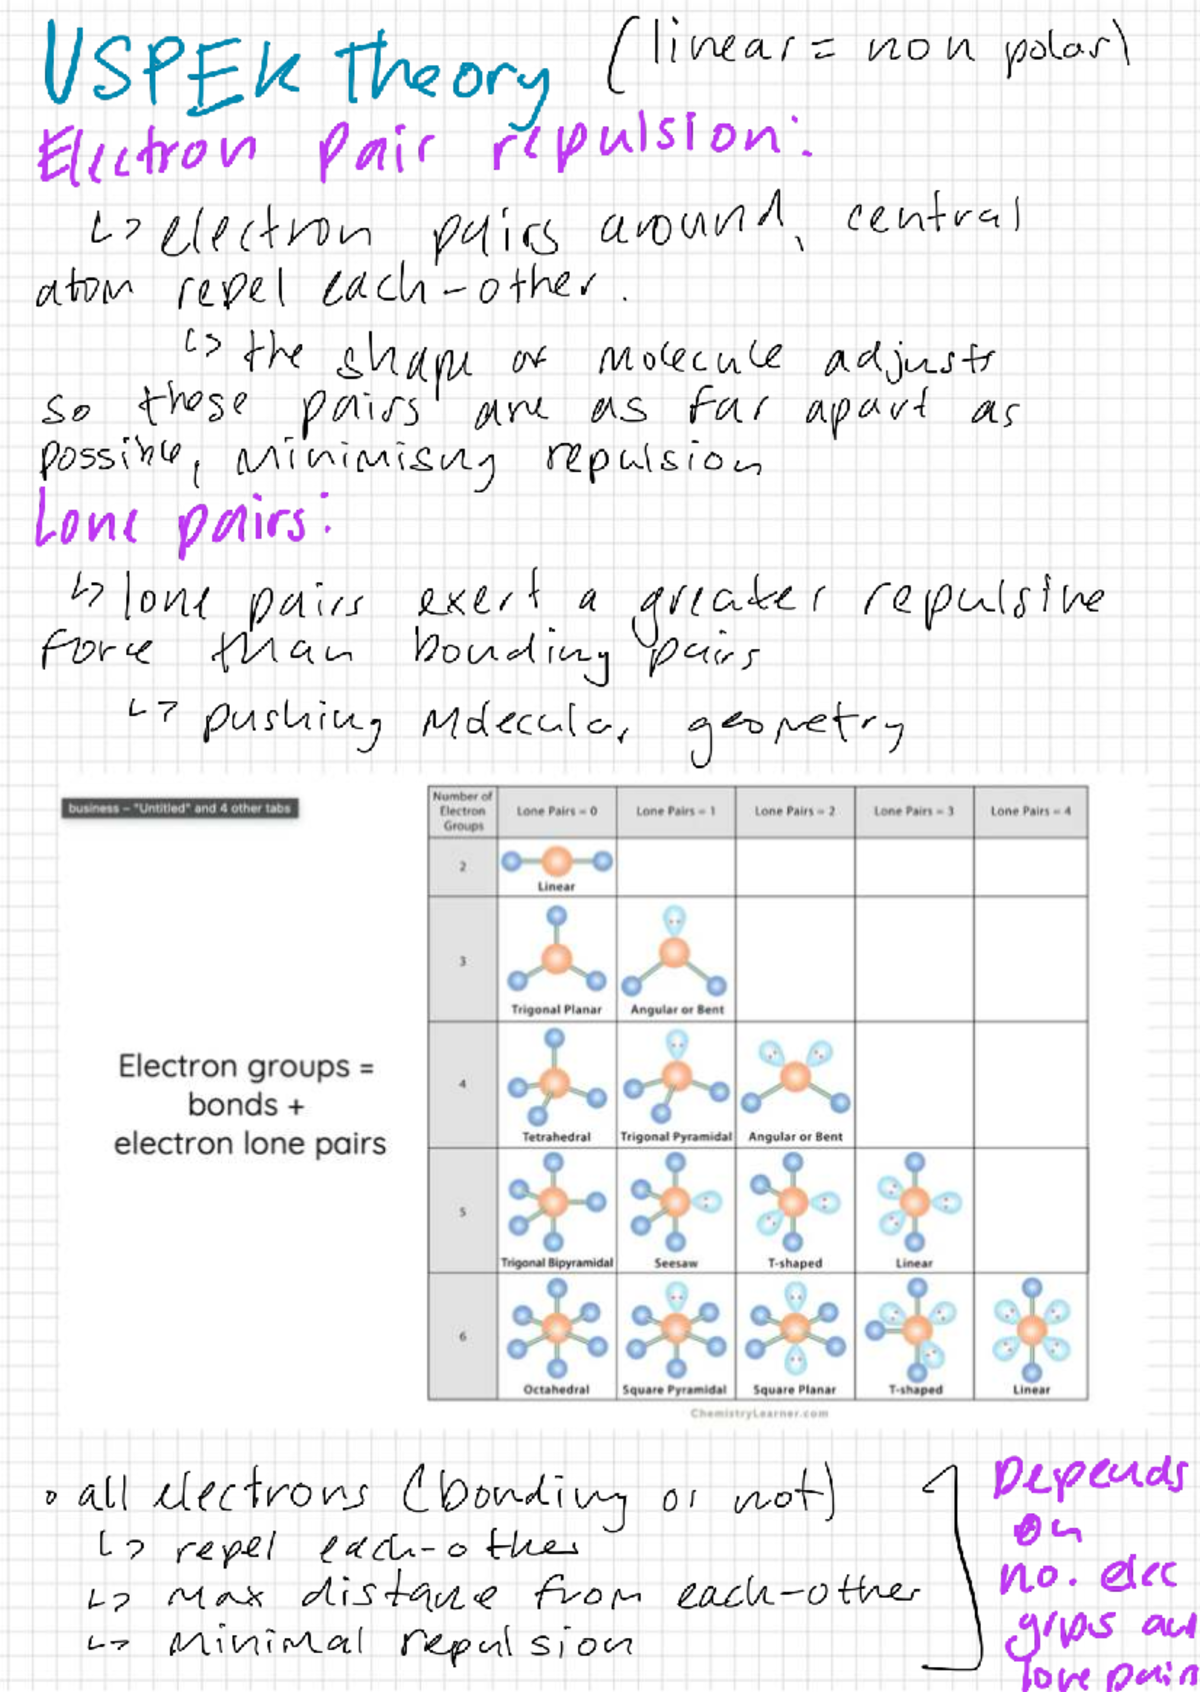 VSPER theory (linear = non polar)
Electron pair repulsion:
↳ electron pairs around central
atom repel each-other.
↳ the shape of molecule adjusts
so these pairs are as far apart as
possible, minimising repulsion
Lone pairs:
↳ lone pairs exert a greater repulsive
force than bonding pairs
↳ pushing molecular geometry
business – "Untitled" and 4 other tabs
Electron groups =
bonds +
electron lone pairs
Number of Electron Groups Lone Pairs = 0 Lone Pairs = 1 Lone Pairs = 2 Lone Pairs = 3 Lone Pairs = 4
2
Linear
3
Trigonal Planar Angular or Bent
4
Tetrahedral Trigonal Pyramidal Angular or Bent
5
Trigonal Bipyramidal Seesaw T-shaped Linear
6
Octahedral Square Pyramidal Square Planar T-shaped Linear
ChemistryLearner.com
• all electrons (bonding or not)
↳ repel each-other
↳ max distance from each-other
↳ minimal repulsion
Depends
on
no. elec
grps and
lone pair